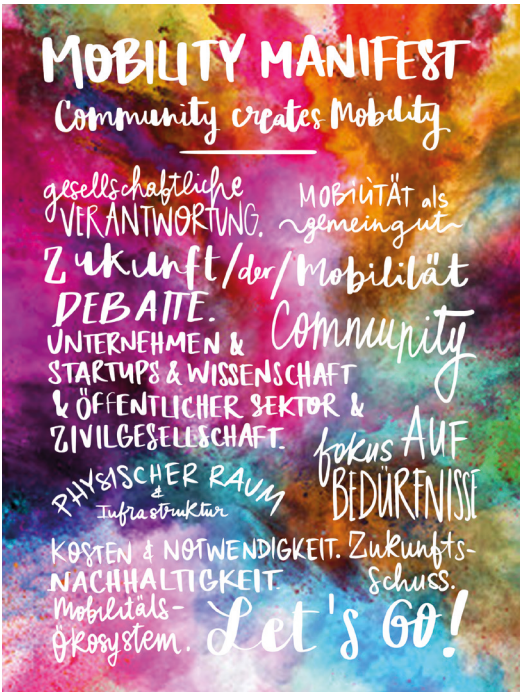 MOBILITY MANIFEST
Community creates Mobility
gesellschaftliche
VERANTWORTUNG.
MOBILITÄT als
~gemeingut~
Zukunft/der/Mobilität
DEBATTE.
Community
UNTERNEHMEN &
STARTUPS & WISSENSCHAFT
& ÖFFENTLICHER SEKTOR &
ZIVILGESELLSCHAFT.
fokus AUF
BEDÜRFNISSE
PHYSISCHER RAUM
&
Infrastruktur
KOSTEN & NOTWENDIGKEIT. Zukunfts-
NACHHALTIGKEIT. schuss.
Mobilitäts-
Ökosystem. Let's GO!